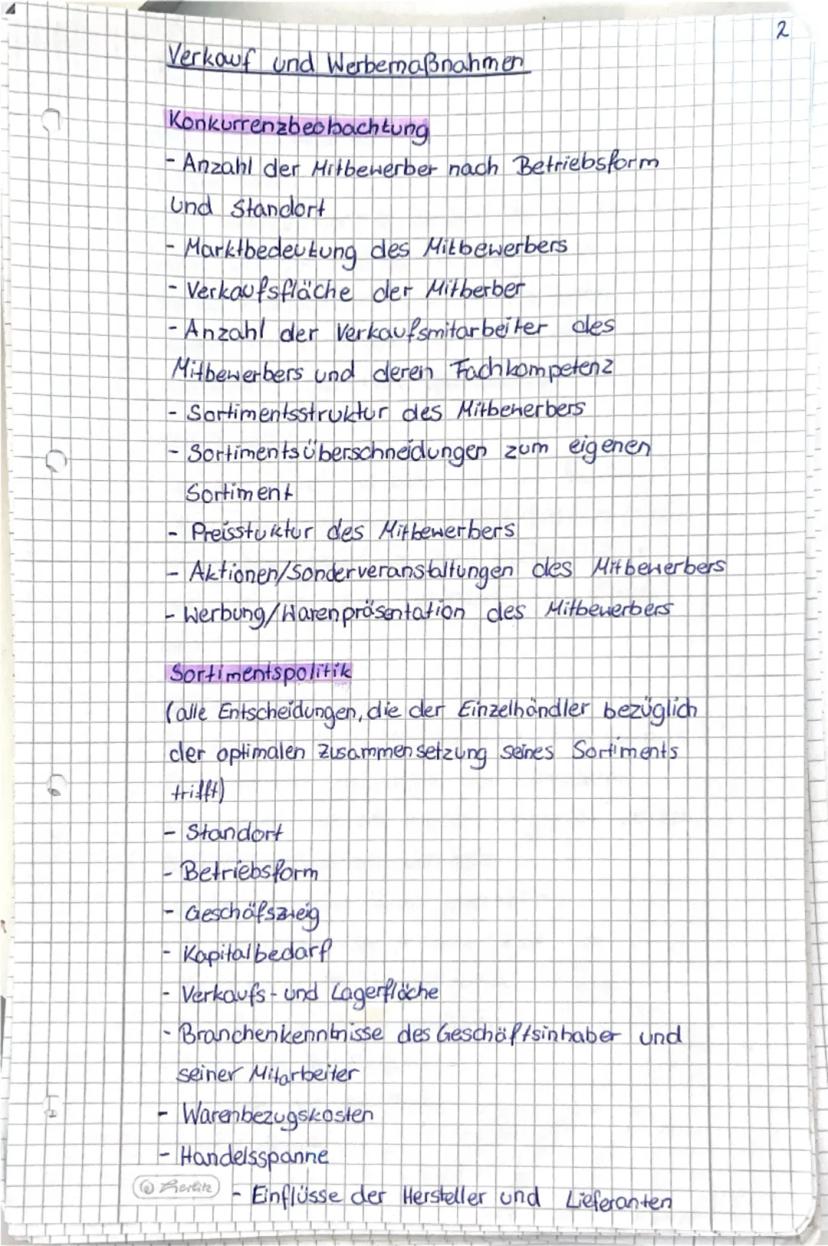 2
Verkauf und Werbemaßnahmen
Konkurrenzbeobachtung
- Anzahl der Mitbewerber nach Betriebsform
und Standort
- Marktbedeutung des Mitbewerbers
- Verkaufsfläche der Mitberber
- Anzahl der Verkaufsmitarbeiter des
Mitbewerbers und deren Fachkompetenz
- Sortimentsstruktur des Mitbewerbers
- Sortimentsüberschneidungen zum eigenen
Sortiment
- Preisstuktur des Mitbewerbers
- Aktionen/Sonderveranstaltungen des Mitbewerbers
- Werbung/Warenpräsentation des Mitbewerbers
Sortimentspolitik
(alle Entscheidungen, die der Einzelhändler bezüglich
der optimalen Zusammensetzung seines Sortiments
trifft)
- Standort
- Betriebsform
- Geschäfszweig
- Kapitalbedarf
- Verkaufs- und Lagerfläche
- Branchenkenntnisse des Geschäftsinhaber und
seiner Mitarbeiter
- Warenbezugskosten
- Handelsspanne
- Einflüsse der Hersteller und Lieferanten